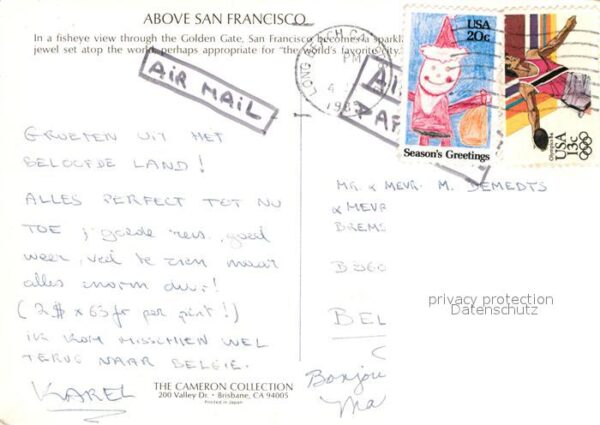 ABOVE SAN FRANCISCO
In a fisheye view through the Golden Gate, San Francisco becomes a sparkl
jewel set atop the world, perhaps appropriate for "the world's favorite city."
AIR MAIL
LONG BEACH CA
PM
4
198
USA
20c
Season's Greetings
Olympics 84
USA
13c
GROETEN UIT HET
BELOOFDE LAND!
ALLES PERFECT TOT NU
TOE; goede reis, goed
weer, veel te zien maar
alles enorm duur!
(2$ x 63 fr per pint!)
IK KOM MISSCHIEN WEL
TERUG NAAR BELGIE.
KAREL
MR. & MEVR. M. DEMEDTS
& MEVR
BREMS
BEL
Bonjou
Ma
privacy protection
Datenschutz
THE CAMERON COLLECTION
200 Valley Dr. • Brisbane, CA 94005
Printed in Japan